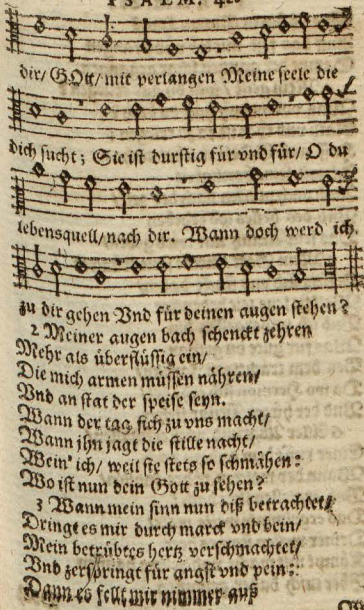 PSALM. 42.
dir/ GOtt/ mit verlangen Meine seele die
dich sucht; Sie ist durstig für vnd für/ O du
lebensquell/ nach dir. Wann doch werd ich
zu dir gehen Vnd für deinen augen stehen?
2 Meiner augen bach schenckt zehren
Mehr als überflüssig ein/
Die mich armen müssen nähren/
Vnd an stat der speise seyn.
Wann der tag sich zu vns macht/
Wann jhn jagt die stille nacht/
Wein' ich/ weil sie stets so schmähen:
Wo ist nun dein Gott zu sehen?
3 Wann mein sinn nun diß betrachtet/
Dringt es mir durch marck vnd bein/
Mein betrübtes hertz verschmachtet/
Vnd zerspringt für angst vnd pein:
Dann es fellt mir nimmer auß